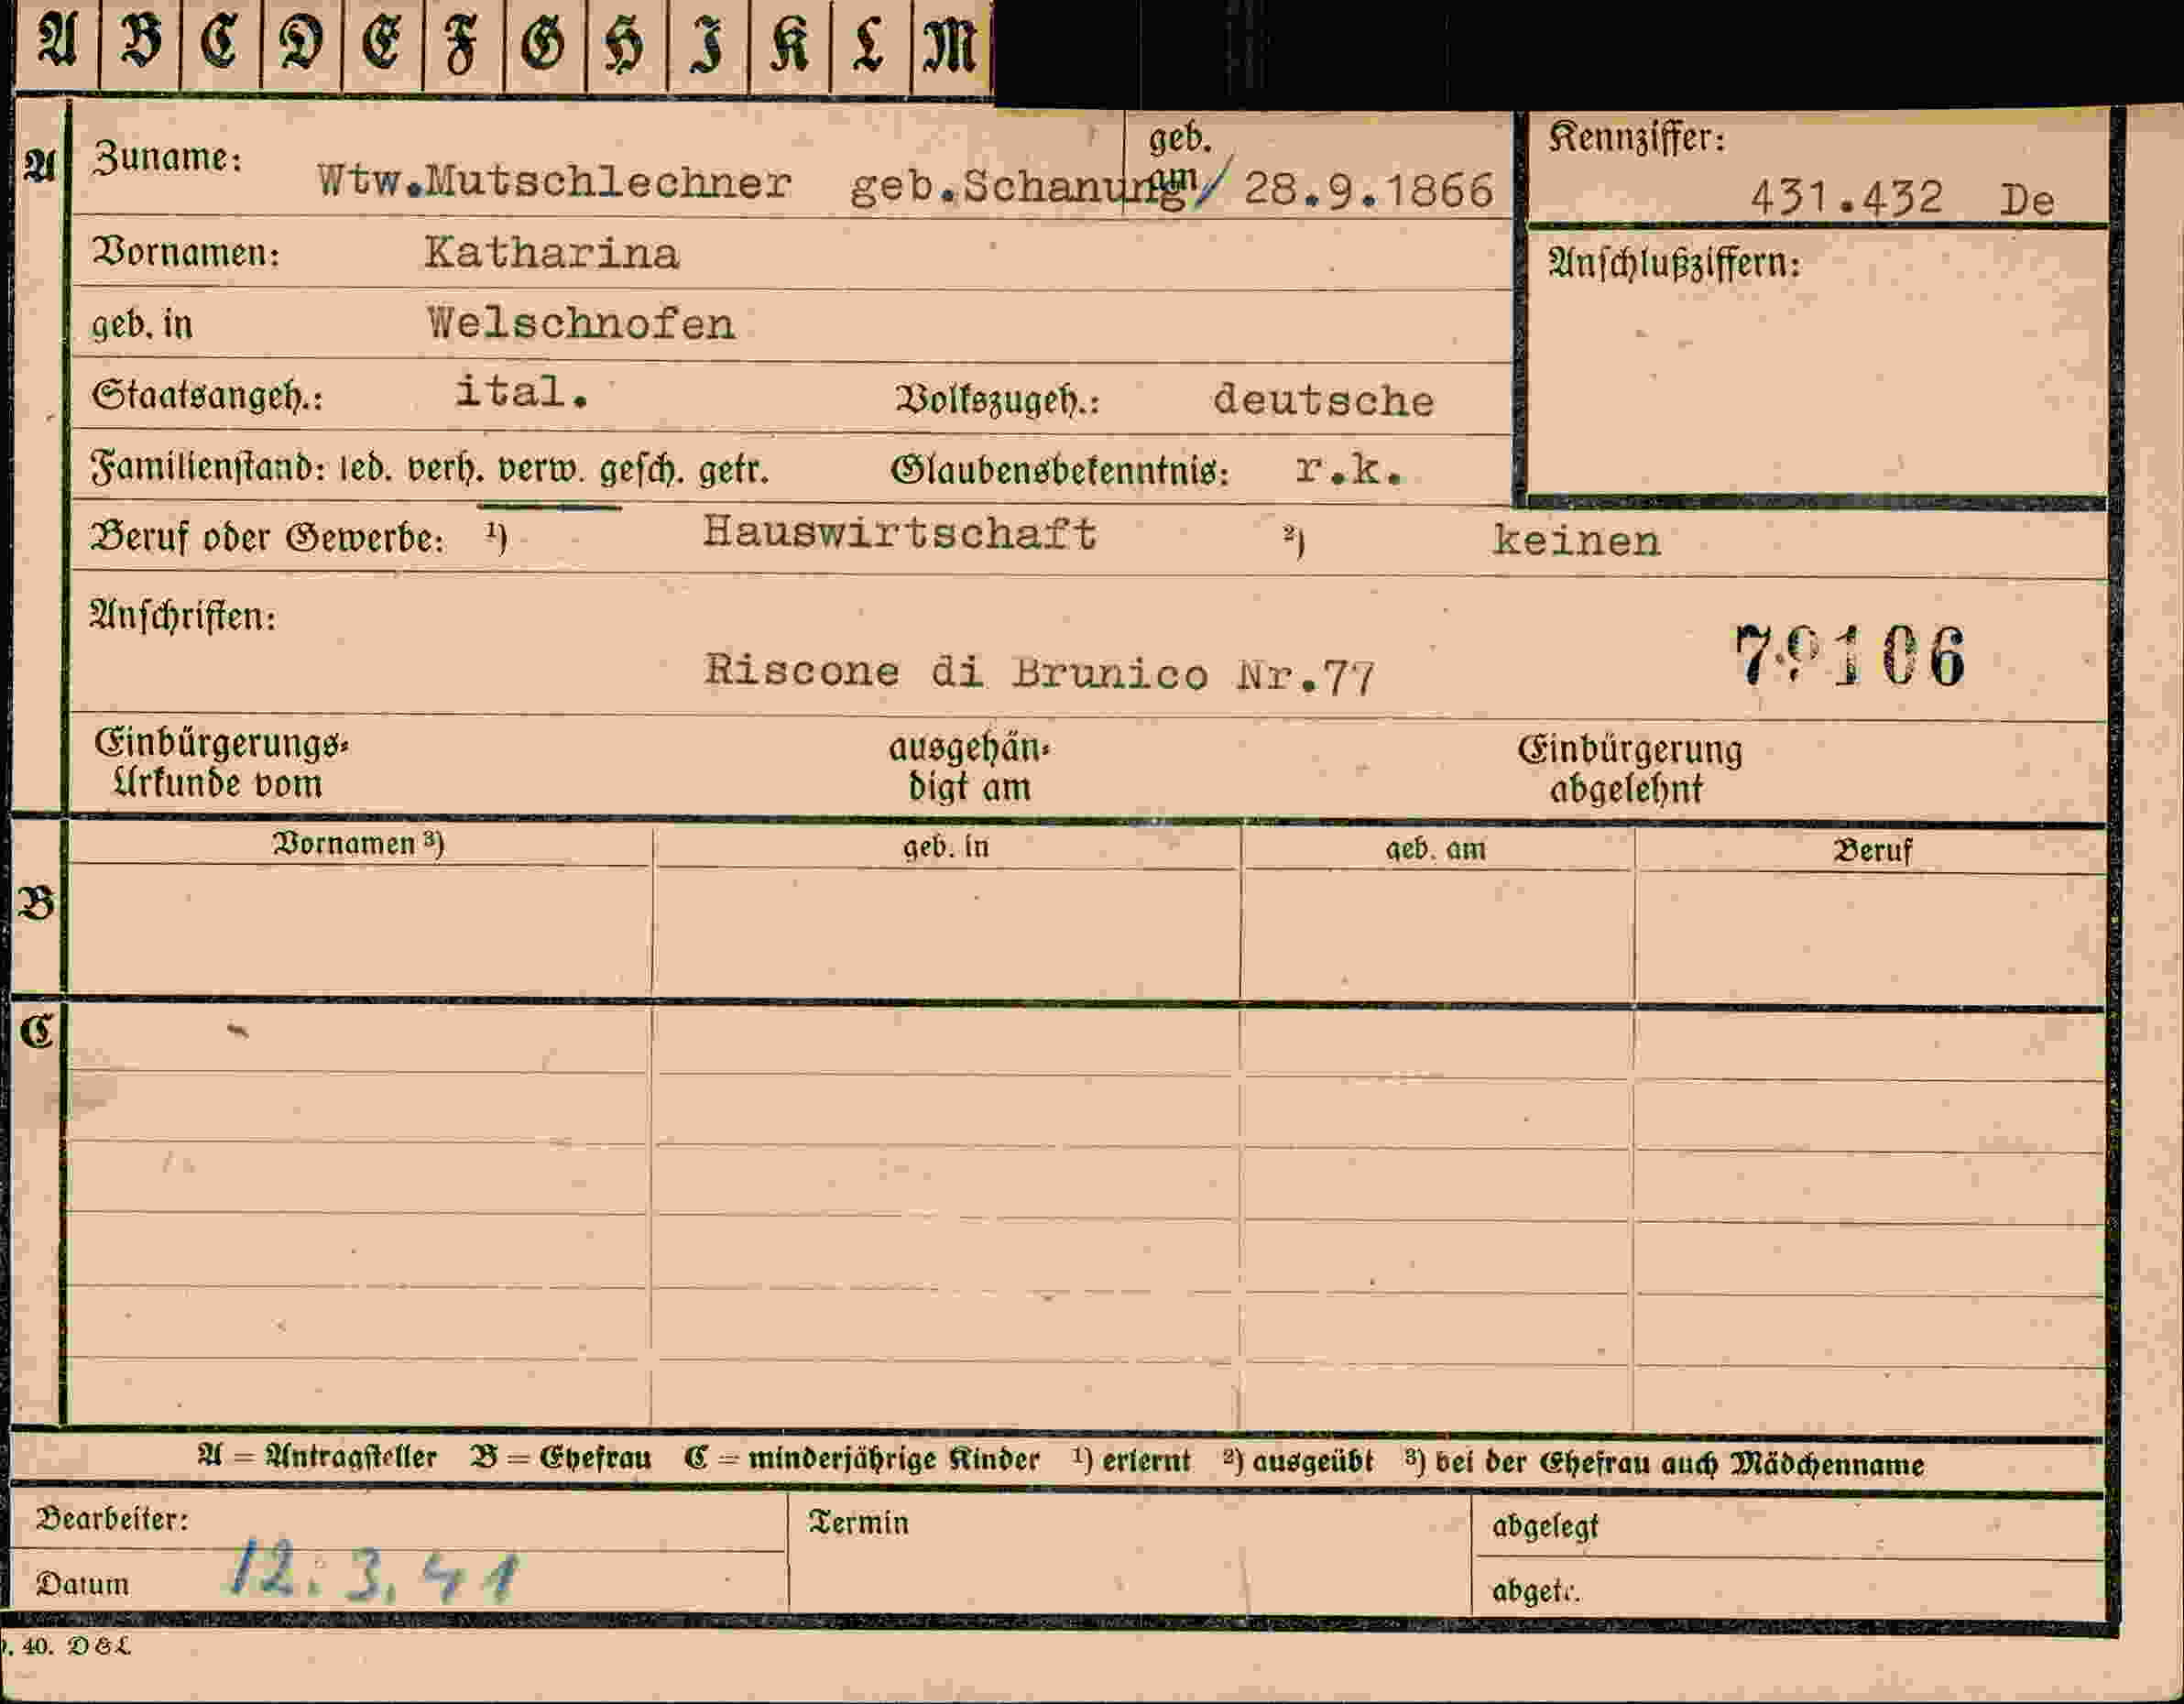 A B C D E F G H I K L M
A Zuname: Wtw.Mutschlechner geb.Schanung geb. am / 28.9.1866 Kennziffer: 431.432 De
Vornamen: Katharina Anschlußziffern:
geb. in Welschnofen
Staatsangeh.: ital. Volkszugeh.: deutsche
Familienstand: led. verh. verw. gesch. getr. Glaubensbekenntnis: r.k.
Beruf oder Gewerbe: ¹) Hauswirtschaft ²) keinen
Anschriften:
Riscone di Brunico Nr.77 79106
Einbürgerungs- ausgehän- Einbürgerung
Urkunde vom digt am abgelehnt
Vornamen ³) geb. in geb. am Beruf
B
C
A = Antragsteller B = Ehefrau C = minderjährige Kinder ¹) erlernt ²) ausgeübt ³) bei der Ehefrau auch Mädchenname
Bearbeiter: Termin abgelegt
Datum 12.3.41 abgetr.
. 40. D & L